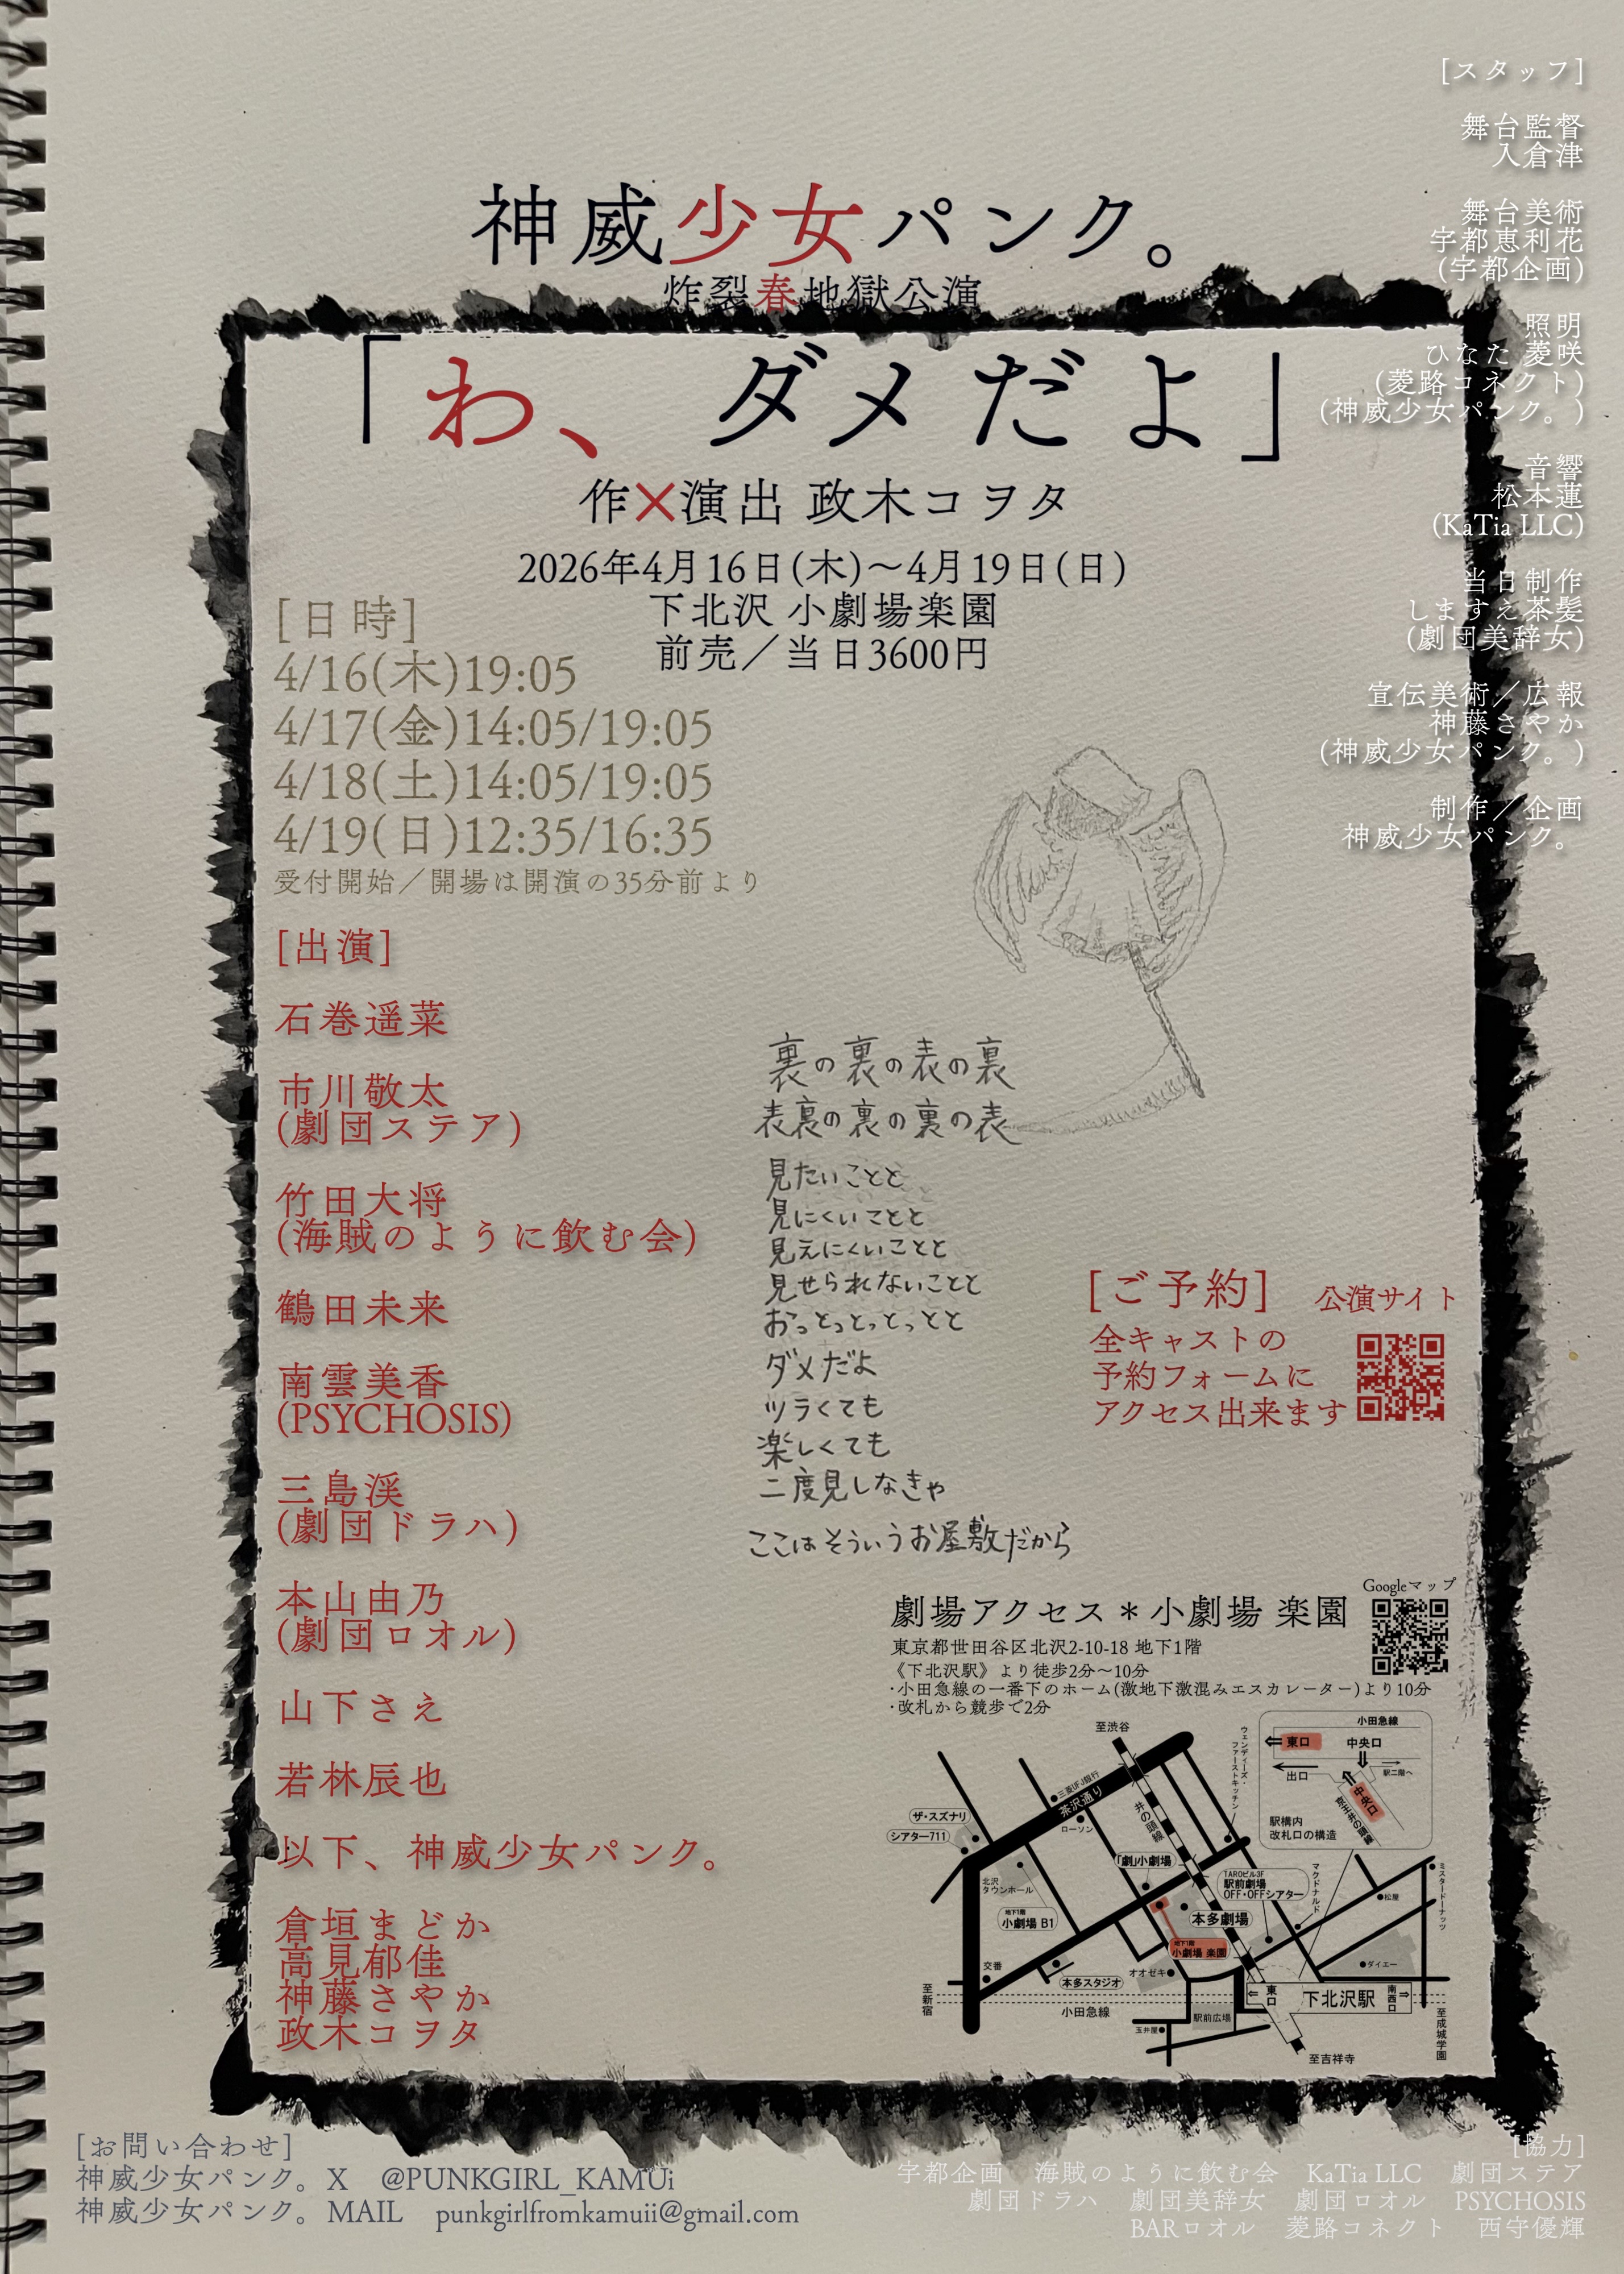 神威少女パンク。
炸裂春地獄公演
「わ、ダメだよ」
作×演出 政木コヲタ
2026年4月16日(木)〜4月19日(日)
下北沢 小劇場楽園
前売／当日3600円
[日時]
4/16(木)19:05
4/17(金)14:05/19:05
4/18(土)14:05/19:05
4/19(日)12:35/16:35
受付開始／開場は開演の35分前より
[出演]
石巻遥菜
市川敬太
(劇団ステア)
竹田大将
(海賊のように飲む会)
鶴田未来
南雲美香
(PSYCHOSIS)
三島渓
(劇団ドラハ)
本山由乃
(劇団ロオル)
山下さえ
若林辰也
以下、神威少女パンク。
倉垣まどか
高見郁佳
神藤さやか
政木コヲタ
裏の裏の表の裏
表裏の裏の裏の表
見たいことと
見にくいことと
見えにくいことと
見せられないことと
おっとっとっとっとと
ダメだよ
ツラくても
楽しくても
二度見しなきゃ
ここはそういうお屋敷だから
[ご予約]
公演サイト
全キャストの
予約フォームに
アクセス出来ます
Googleマップ
劇場アクセス＊小劇場 楽園
東京都世田谷区北沢2-10-18 地下1階
《下北沢駅》より徒歩2分〜10分
・小田急線の一番下のホーム(激地下激混みエスカレーター)より10分
・改札から競歩で2分
至渋谷
ウェンディーズ・
ファーストキッチン
小田急線
東口
中央口
出口
駅二階へ
中央口
京王井の頭線
駅構内
改札口の構造
三菱UFJ銀行
茶沢通り
ローソン
井の頭線
ザ・スズナリ
シアター711
「劇」小劇場
TAROビル3F
駅前劇場
OFF・OFFシアター
マクドナルド
ミスタードーナッツ
松屋
北沢
タウンホール
地下1階
小劇場 B1
本多劇場
地下1階
小劇場 楽園
交番
本多スタジオ
オオゼキ
ダイエー
至新宿
小田急線
東口
下北沢駅
南西口
駅前広場
玉井屋
至吉祥寺
至成城学園
[スタッフ]
舞台監督
入倉津
舞台美術
宇都恵利花
(宇都企画)
照明
ひなた 菱咲
(菱路コネクト)
(神威少女パンク。)
音響
松本蓮
(KaTia LLC)
当日制作
しますえ茶髪
(劇団美辞女)
宣伝美術／広報
神藤さやか
(神威少女パンク。)
制作／企画
神威少女パンク。
[お問い合わせ]
神威少女パンク。X @PUNKGIRL_KAMUi
神威少女パンク。MAIL punkgirlfromkamuii@gmail.com
[協力]
宇都企画 海賊のように飲む会 KaTia LLC 劇団ステア
劇団ドラハ 劇団美辞女 劇団ロオル PSYCHOSIS
BARロオル 菱路コネクト 西守優輝